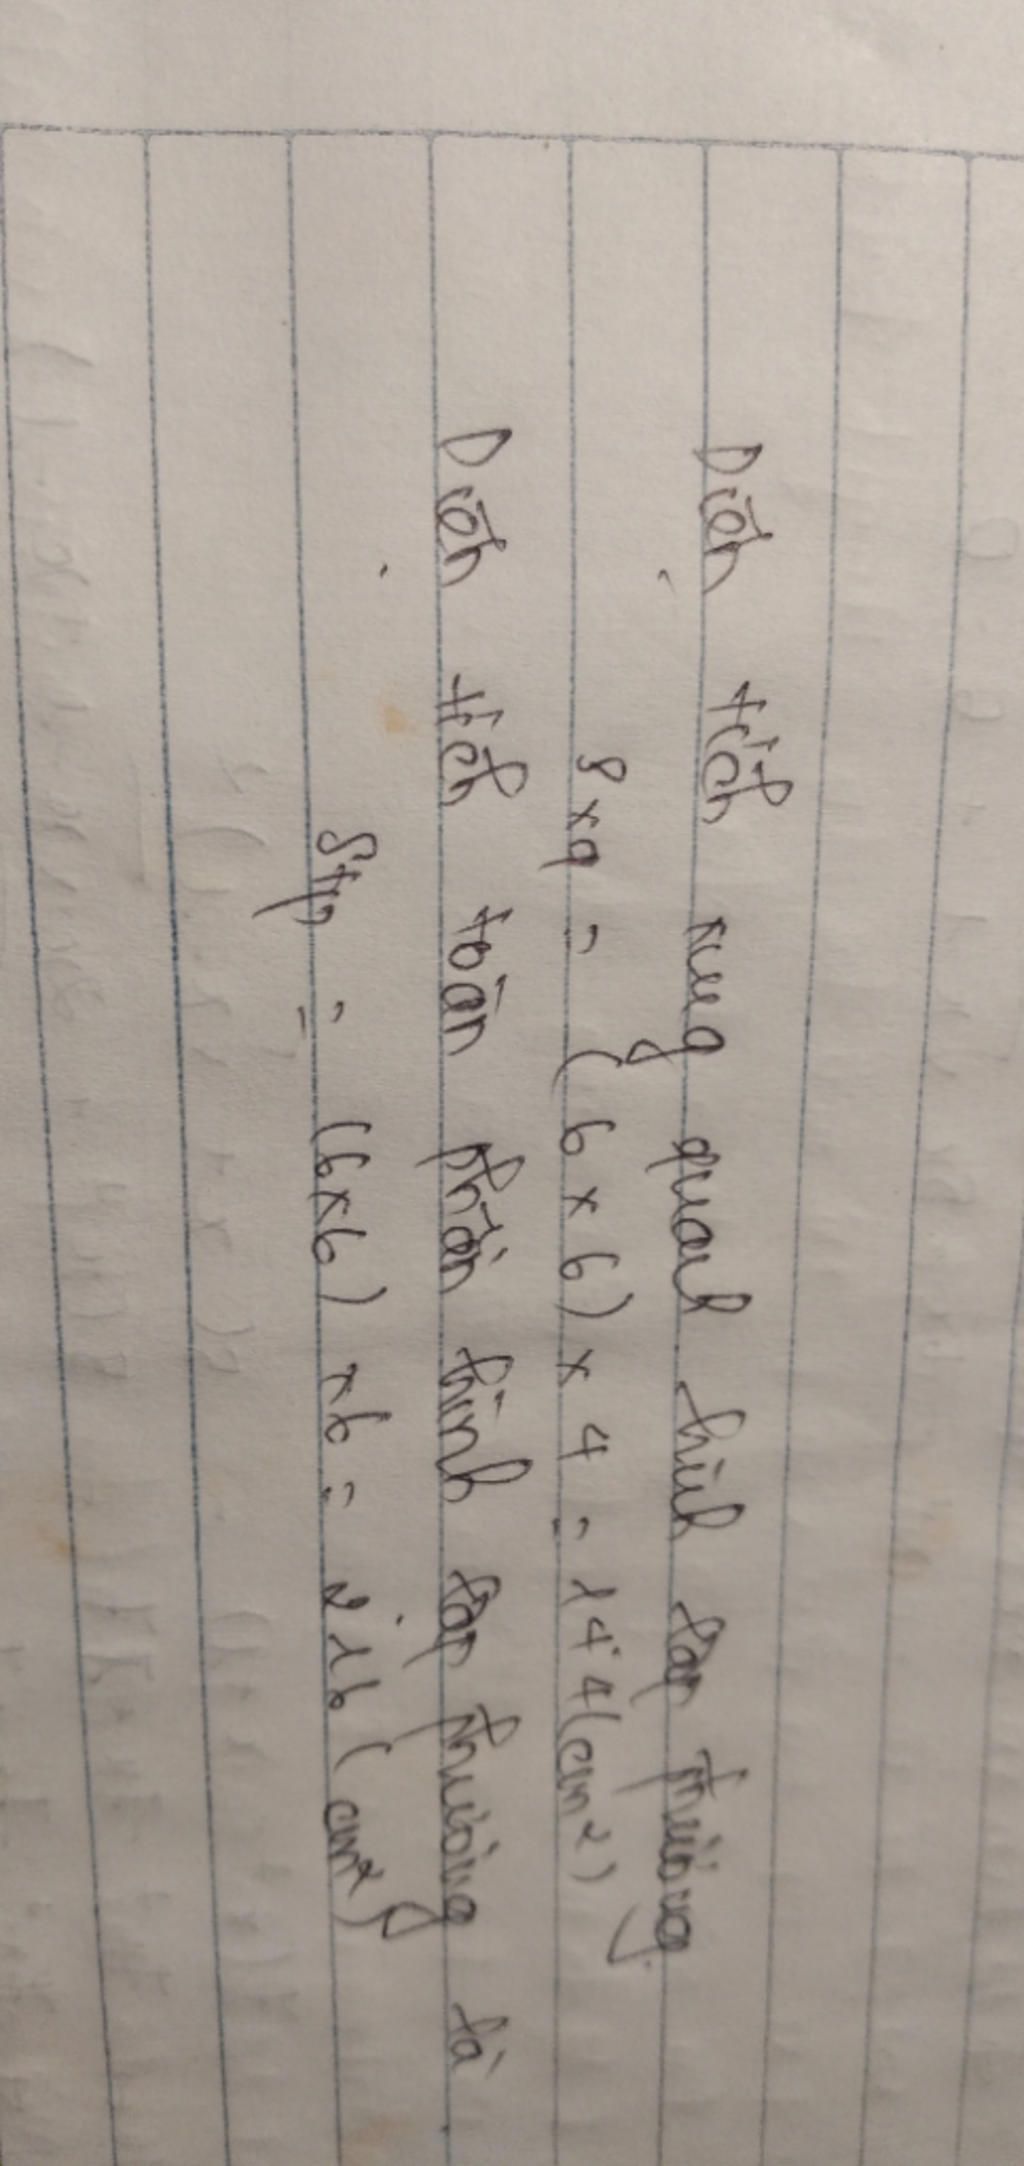 Diện tích xung quanh hình lập phương
Sxq = (6 x 6) x 4 = 144 (cm²)
Diện tích toàn phần hình lập phương là
Stp = (6x6) x6 = 216 (cm²)